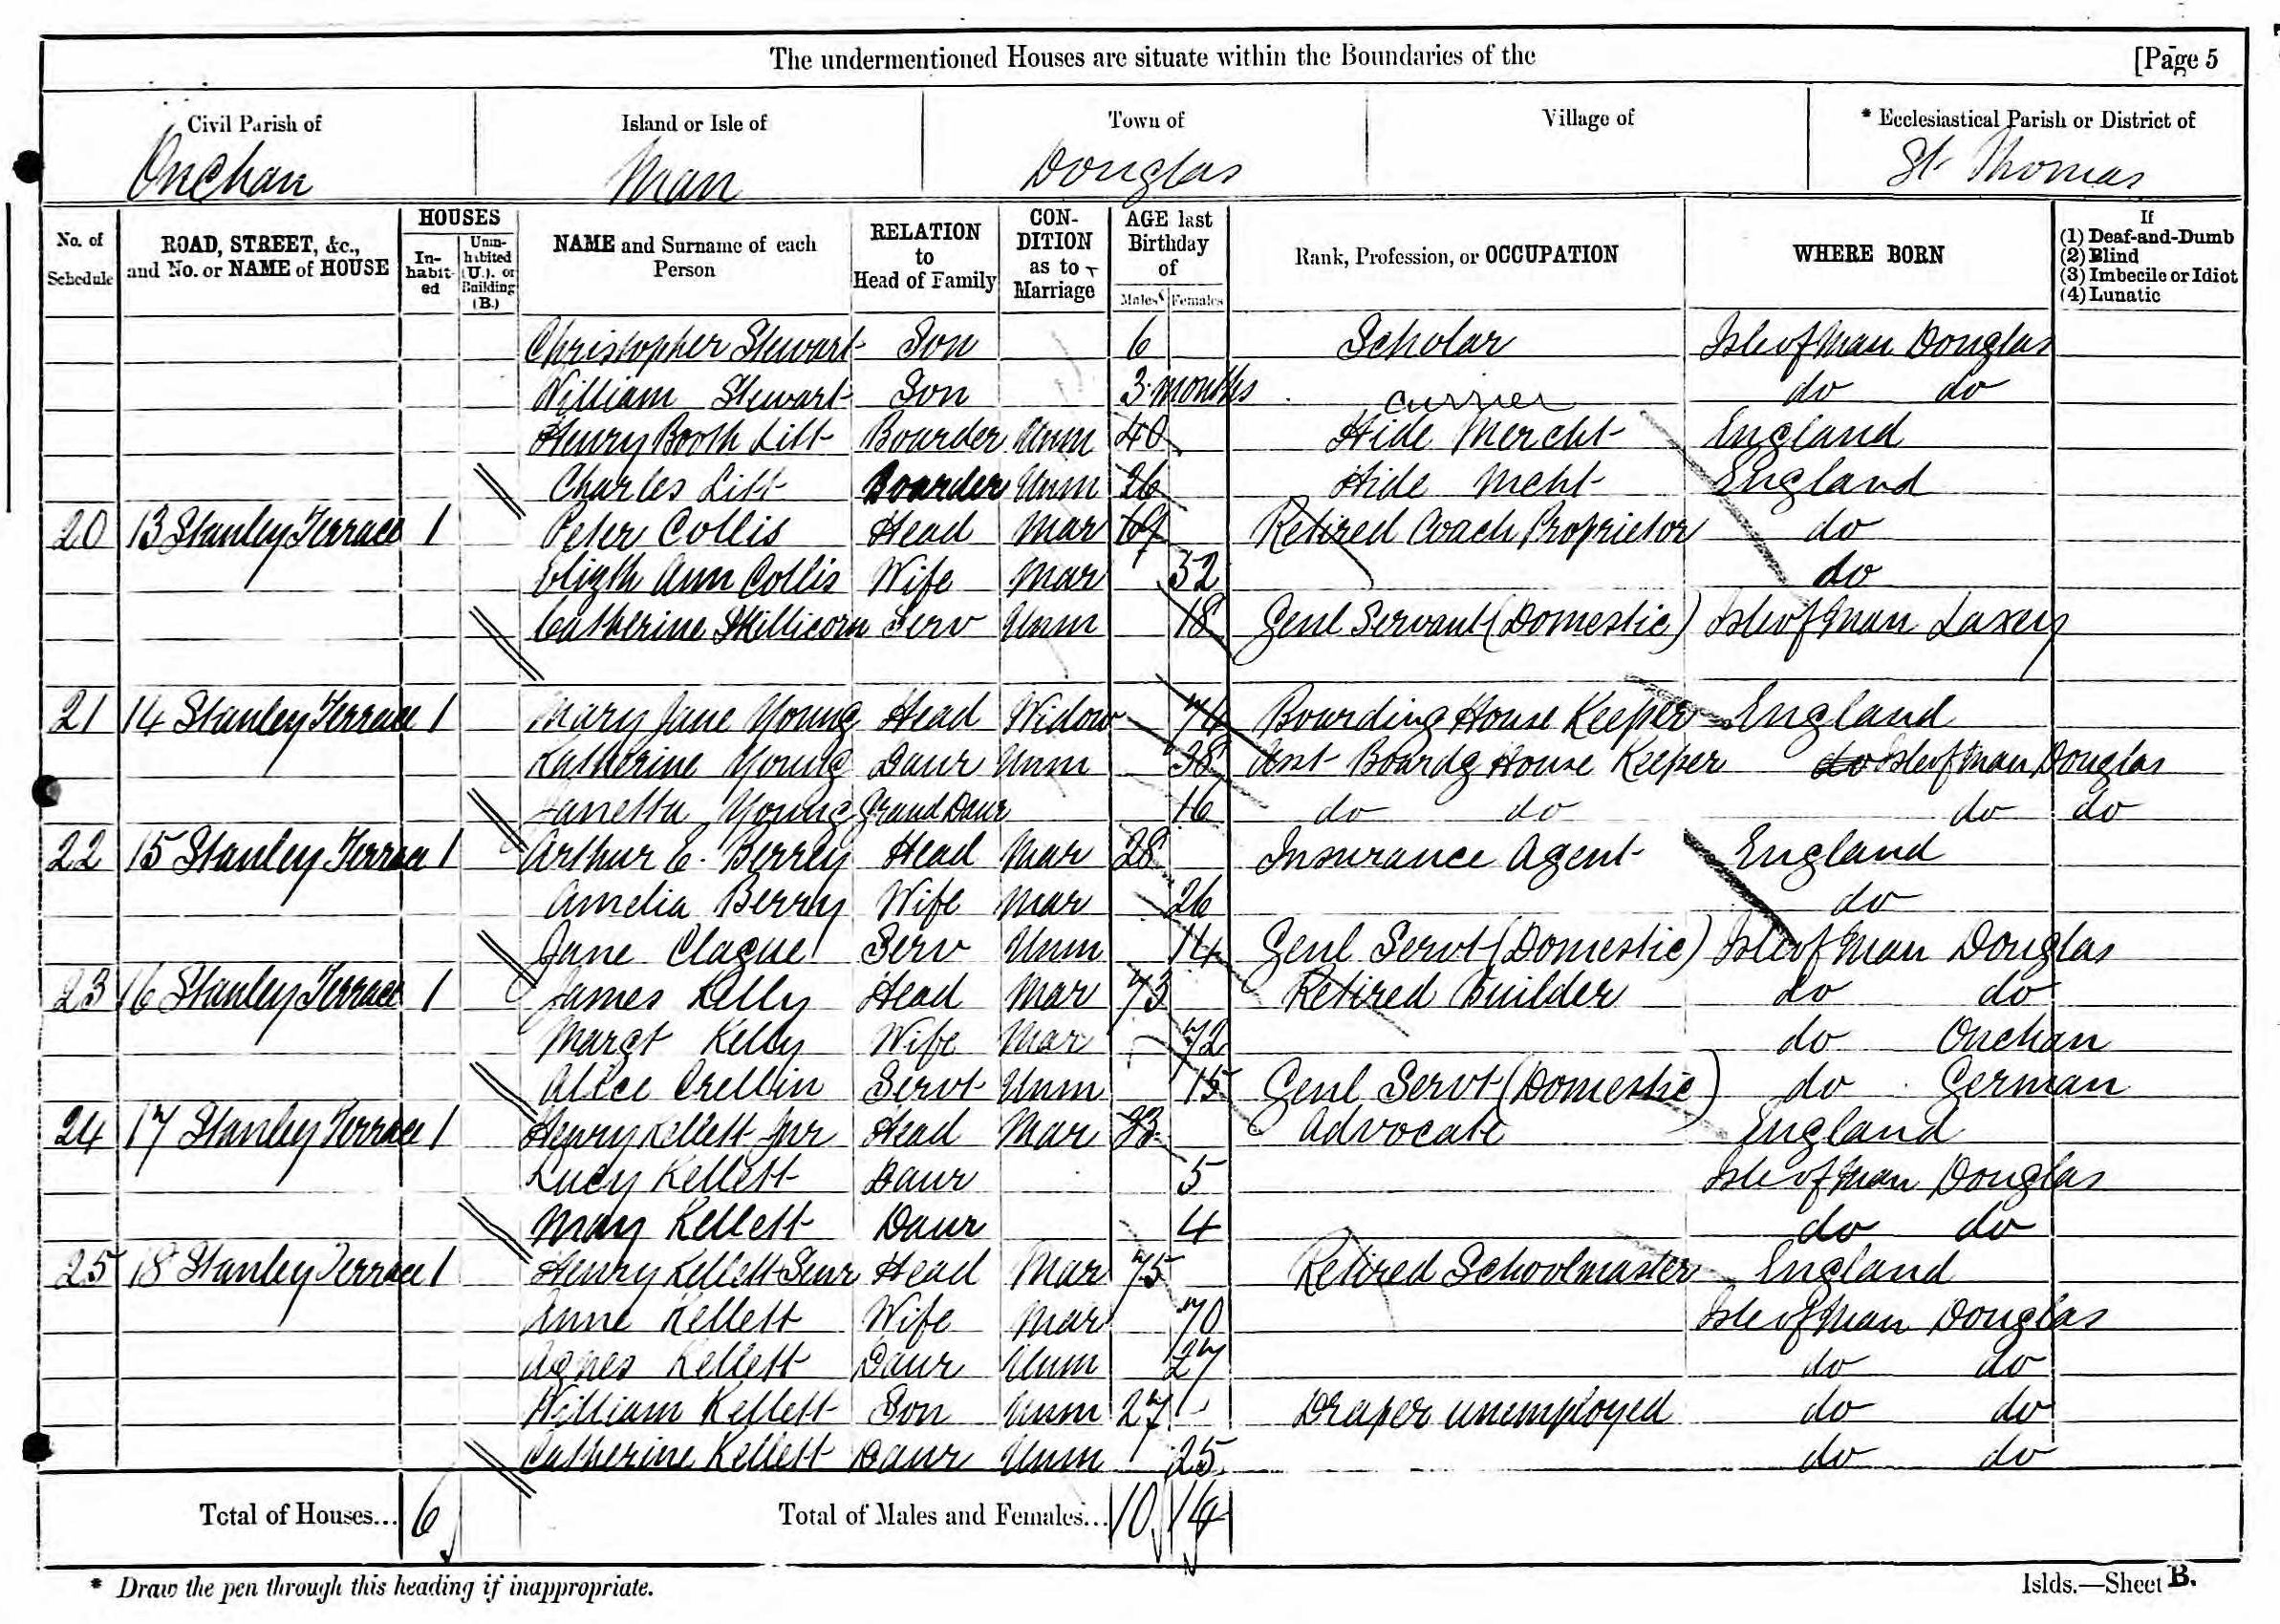 The undermentioned Houses are situate within the Boundaries of the [Page 5
Civil Parish of Island or Isle of Town of Village of * Ecclesiastical Parish or District of
Onchan Man Douglas St Thomas
No. of Schedule ROAD, STREET, &c., and No. or NAME of HOUSE HOUSES Inhabited Uninhabited (U.), or Building (B.) NAME and Surname of each Person RELATION to Head of Family CONDITION as to Marriage AGE last Birthday of Males Females Rank, Profession, or OCCUPATION WHERE BORN If (1) Deaf-and-Dumb (2) Blind (3) Imbecile or Idiot (4) Lunatic
Christopher Stewart Son 6 Scholar Isle of Man Douglas
William Stewart Son 3 months do do
currier
Henry Booth Litt Boarder Unm 40 Hide Mercht England
Charles Litt Boarder Unm 26 Hide Mcht England
20 13 Stanley Terrace 1 Peter Collis Head Mar 69 Retired Coach Proprietor do
Elizth Ann Collis Wife Mar 32 do
Catherine Skillicorn Serv Unm 18 Genl Servant (Domestic) Isle of Man Laxey
21 14 Stanley Terrace 1 Mary Jane Young Head Widow 74 Boarding House Keeper England
Katherine Young Daur Unm 38 Asst Boardg House Keeper do Isle of Man Douglas
Janetta Young Grand Daur 16 do do do do
22 15 Stanley Terrace 1 Arthur E. Berrey Head Mar 28 Insurance Agent England
Amelia Berry Wife Mar 26 do
Jane Clague Serv Unm 14 Genl Servt (Domestic) Isle of Man Douglas
23 16 Stanley Terrace 1 James Kelly Head Mar 73 Retired Builder do do
Margt Kelly Wife Mar 72 do Onchan
Alice Crellin Servt Unm 15 Genl Servt (Domestic) do German
24 17 Stanley Terrace 1 Henry Kellett Jnr Head Mar 33 Advocate England
Lucy Kellett Daur 5 Isle of Man Douglas
May Kellett Daur 4 do do
25 18 Stanley Terrace 1 Henry Kellett Senr Head Mar 75 Retired Schoolmaster England
Anne Kellett Wife Mar 70 Isle of Man Douglas
Agnes Kellett Daur Unm 27 do do
William Kellett Son Unm 27 Draper unemployed do do
Catherine Kellett Daur Unm 25 do do
Total of Houses... 6 Total of Males and Females... 10 14
* Draw the pen through this heading if inappropriate. Islds.—Sheet B.